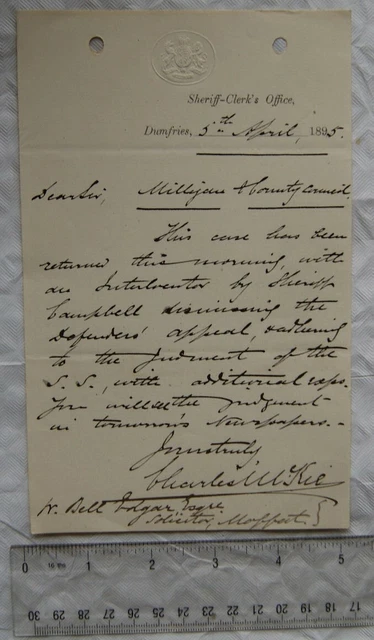 Sheriff-Clerk's Office,
Dumfries, 5th April, 1895.
Dear Sir, Milligan & County Council.
This case has been
returned this morning, with
an Interlocutor by Sheriff
Campbell dismissing the
Defenders' appeal, & adhering
to the Judgment of the
S. S., with additional exps.
You will see the judgment
in tomorrow's Newspapers.-
Yours truly
Charles McKie
W. Bell Edgar, Esqre
Solicitor, Moffat.
1 2 3 4 5
30 29 28 27 26 25 24 23 22 21 20 19 18 17